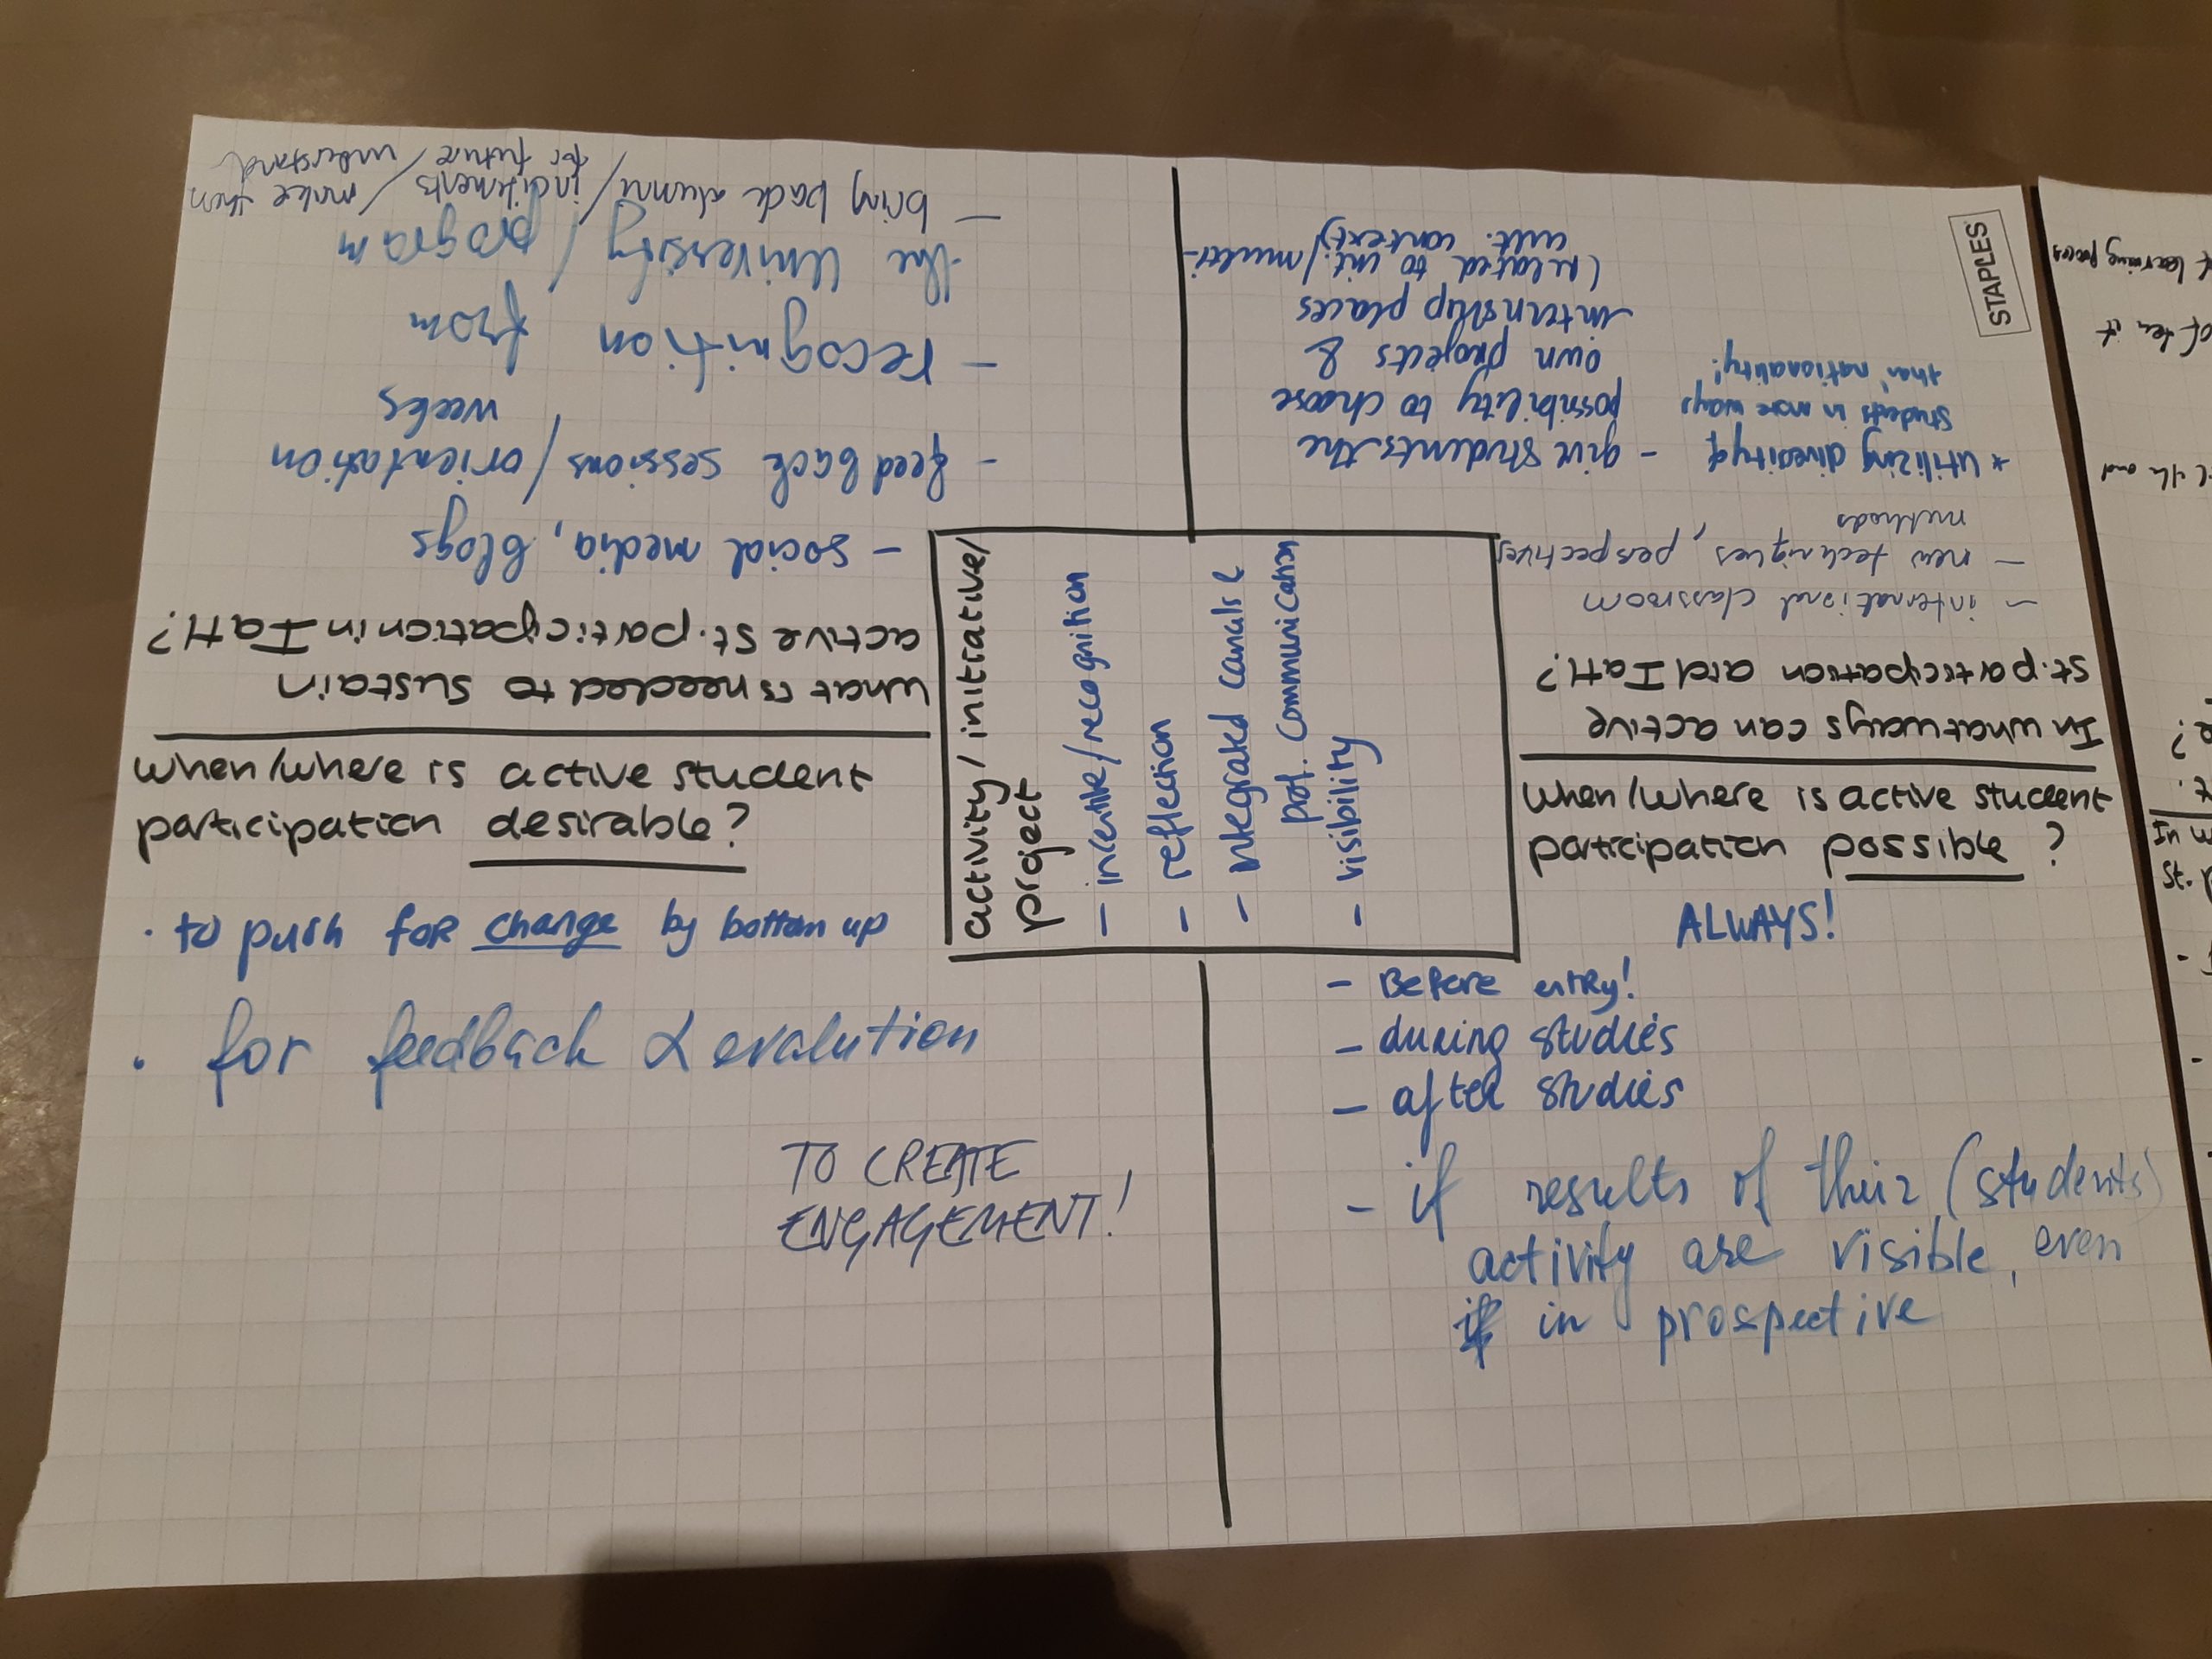 When/where is active student
participation desirable?
· to push for change by bottom up
· for feedback & evalution
TO CREATE
ENGAGEMENT!
When/where is active student
participation possible?
ALWAYS!
- Before entry!
- during studies
- after studies
- if results of their (students)
activity are visible, even
in prospective
activity/initiative/
project
- incentive/recognition
- reflection
- integrated canals &
pot. communication
- visibility
In what ways can active
st. participation aid IatH?
- international classroom
- new techniques, perspectives,
methods
* utilizing diversity of
students in more ways
than 'nationality'!
- give students the
possibility to choose
own projects &
internship places
(related to int./multi-
cult. context)
What is needed to sustain
active st. participation in IatH?
- social media, blogs
- feedback sessions/orientation
weeks
- recognition from
the University/program
- bring back alumni/incitements/make them
for future/understand
STAPLES
of learning process
of ten it
and
In w